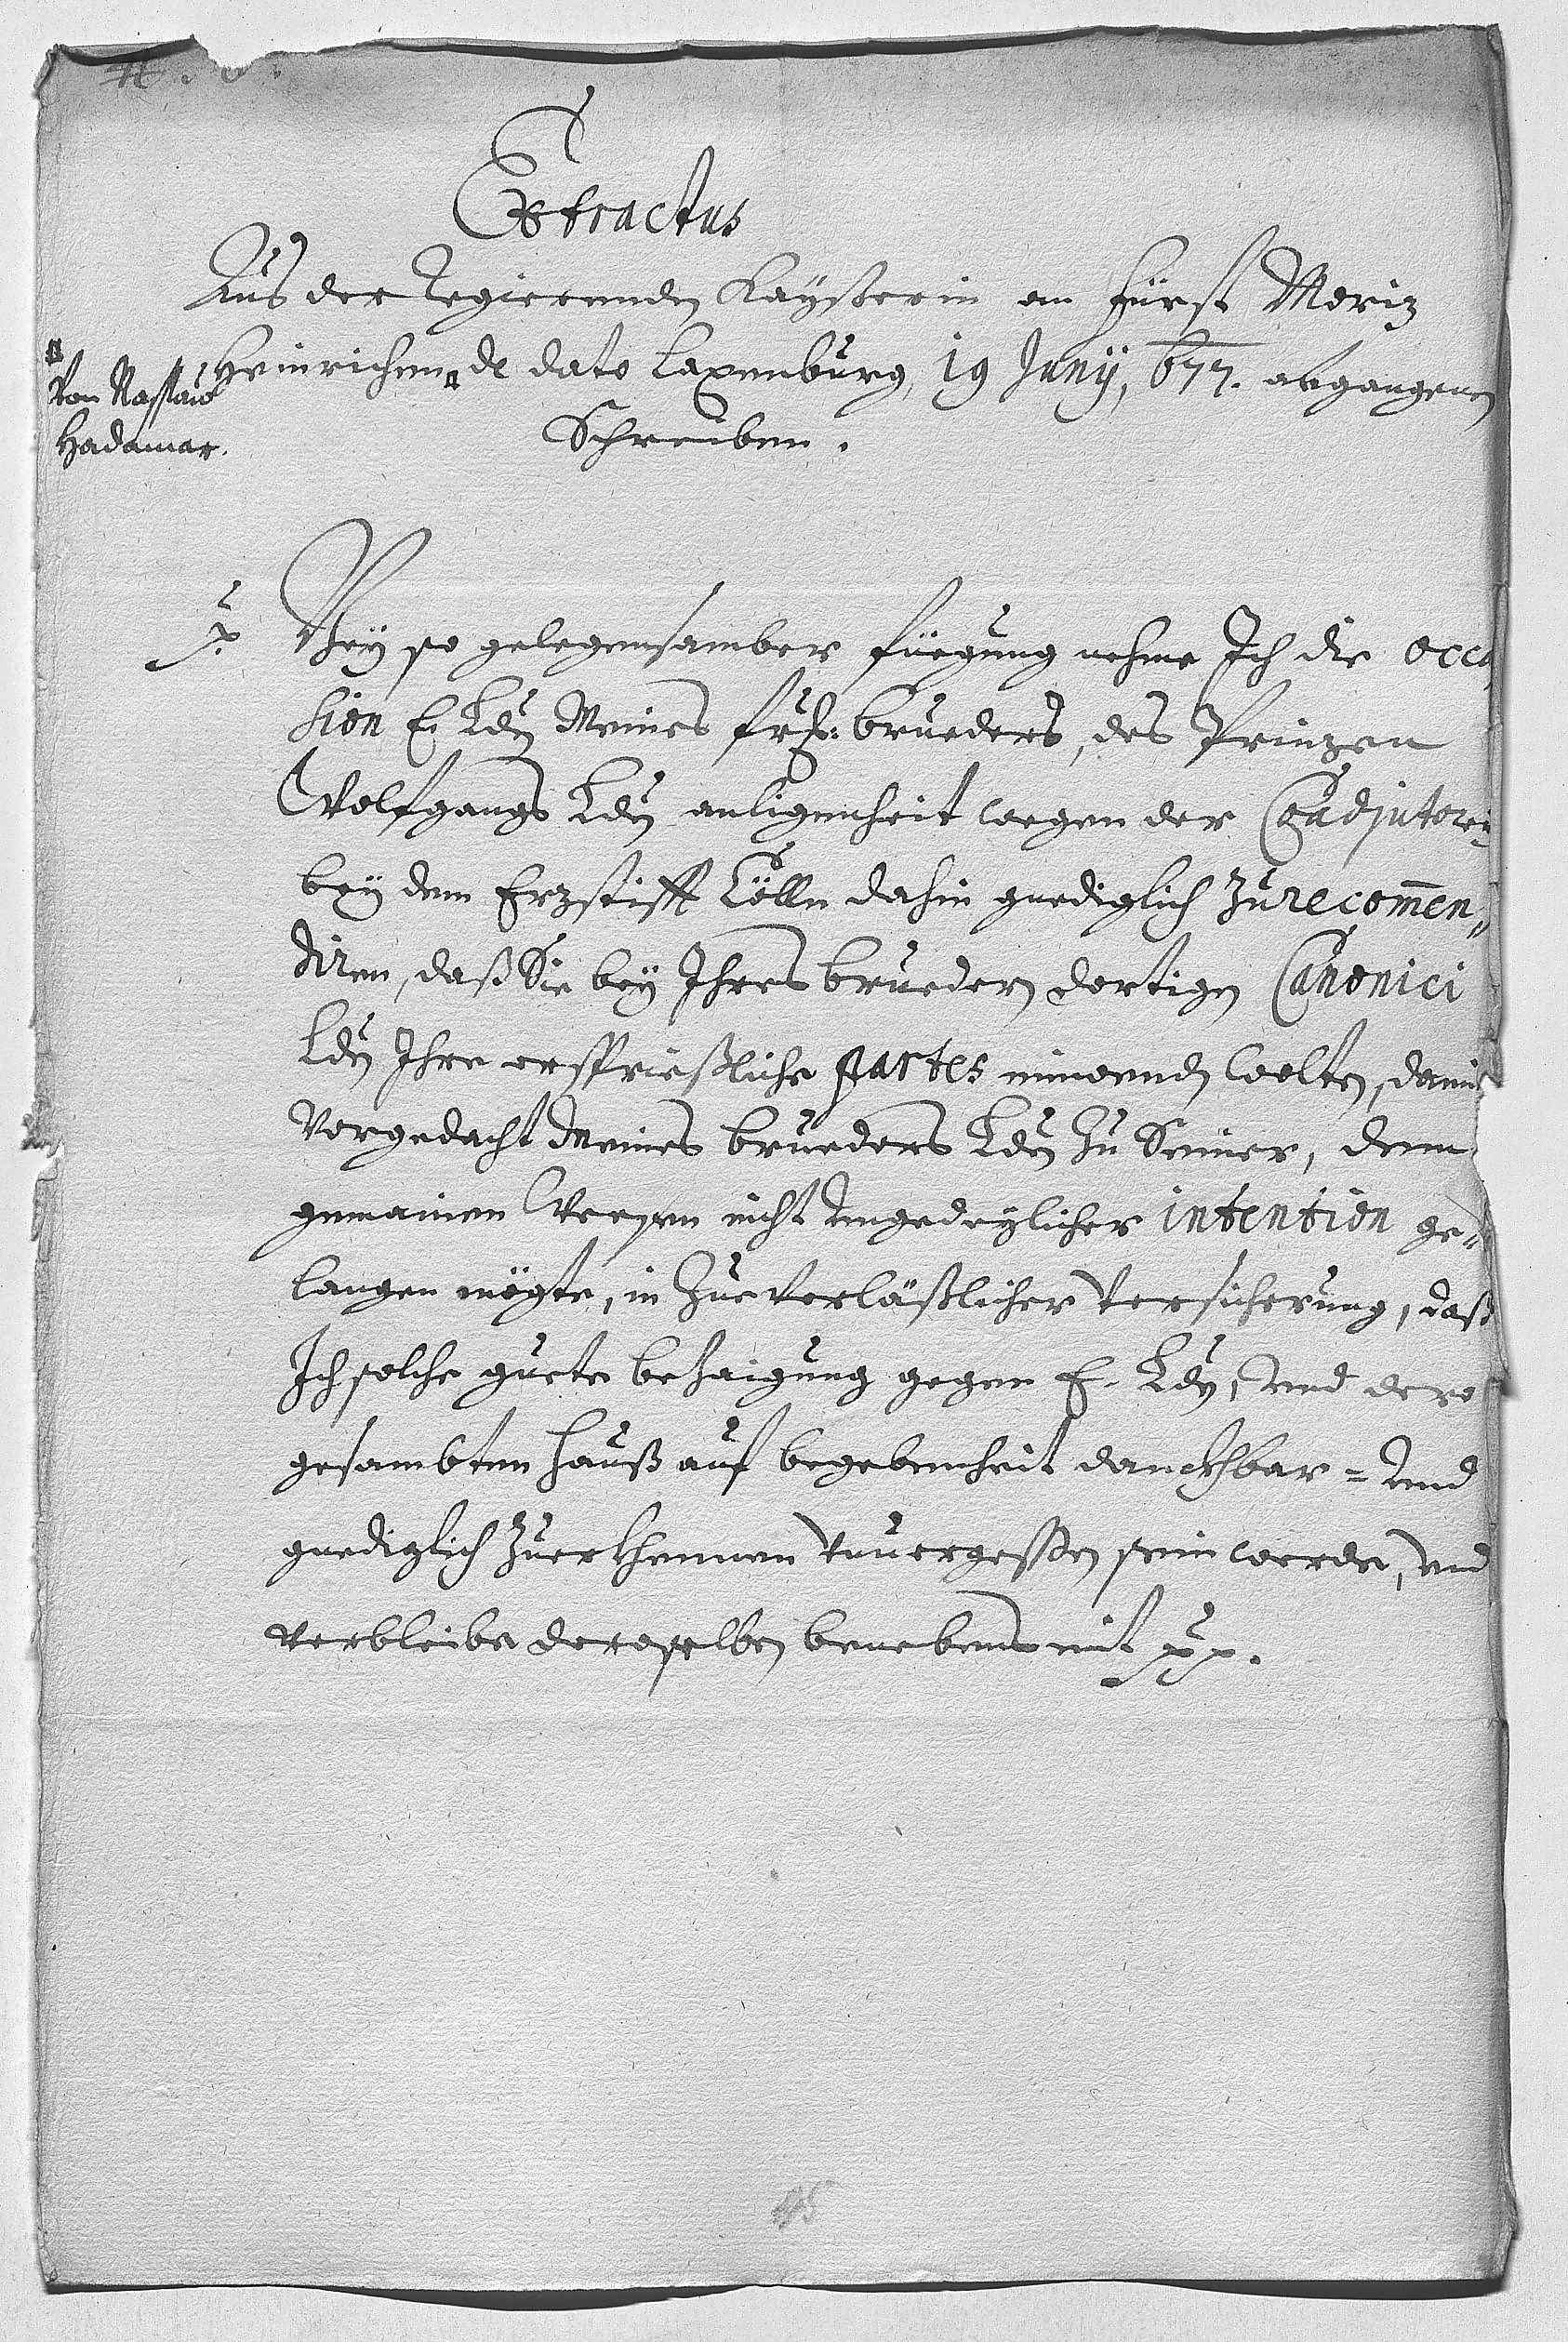 Extractus
Aus der Regierenden Kaÿßerin an Fürst Moriz
Heinrichen de dato Laxenburg, 19 Junÿ, 677. abgangenen
Von Nassaw
Hadamar.
Schreiben.
Beÿ so gelegensamber fuegung nehme Ich die occa
sion E. Ldn Meines frh: brueders, des Prinzen
Wolfgangs Ldn anligenheit wegen der Coadjutorie
beÿ dem Erzstifft Cölln dahin gnediglich zu recomen„
diren, daß Sie beÿ Ihres bruedern dortigen Canonici
Ldn Ihre ersprießliche partes einwenden wolten, damit
Vorgedacht Meines brueders Ldn zu Seiner, dem
gemainen Weesen nicht ungedeylicher intention ge„
langen mögte, in zueverläßlicher versicherung, daß
Ich solche guete bezaigung gegen E. Ldn, und dero
gesambten hauß auf begebenheit danckhbar- und
gnediglich zuerkhennen unvergessen sein werde, und
verbleibe deroselben benebens mit pp.